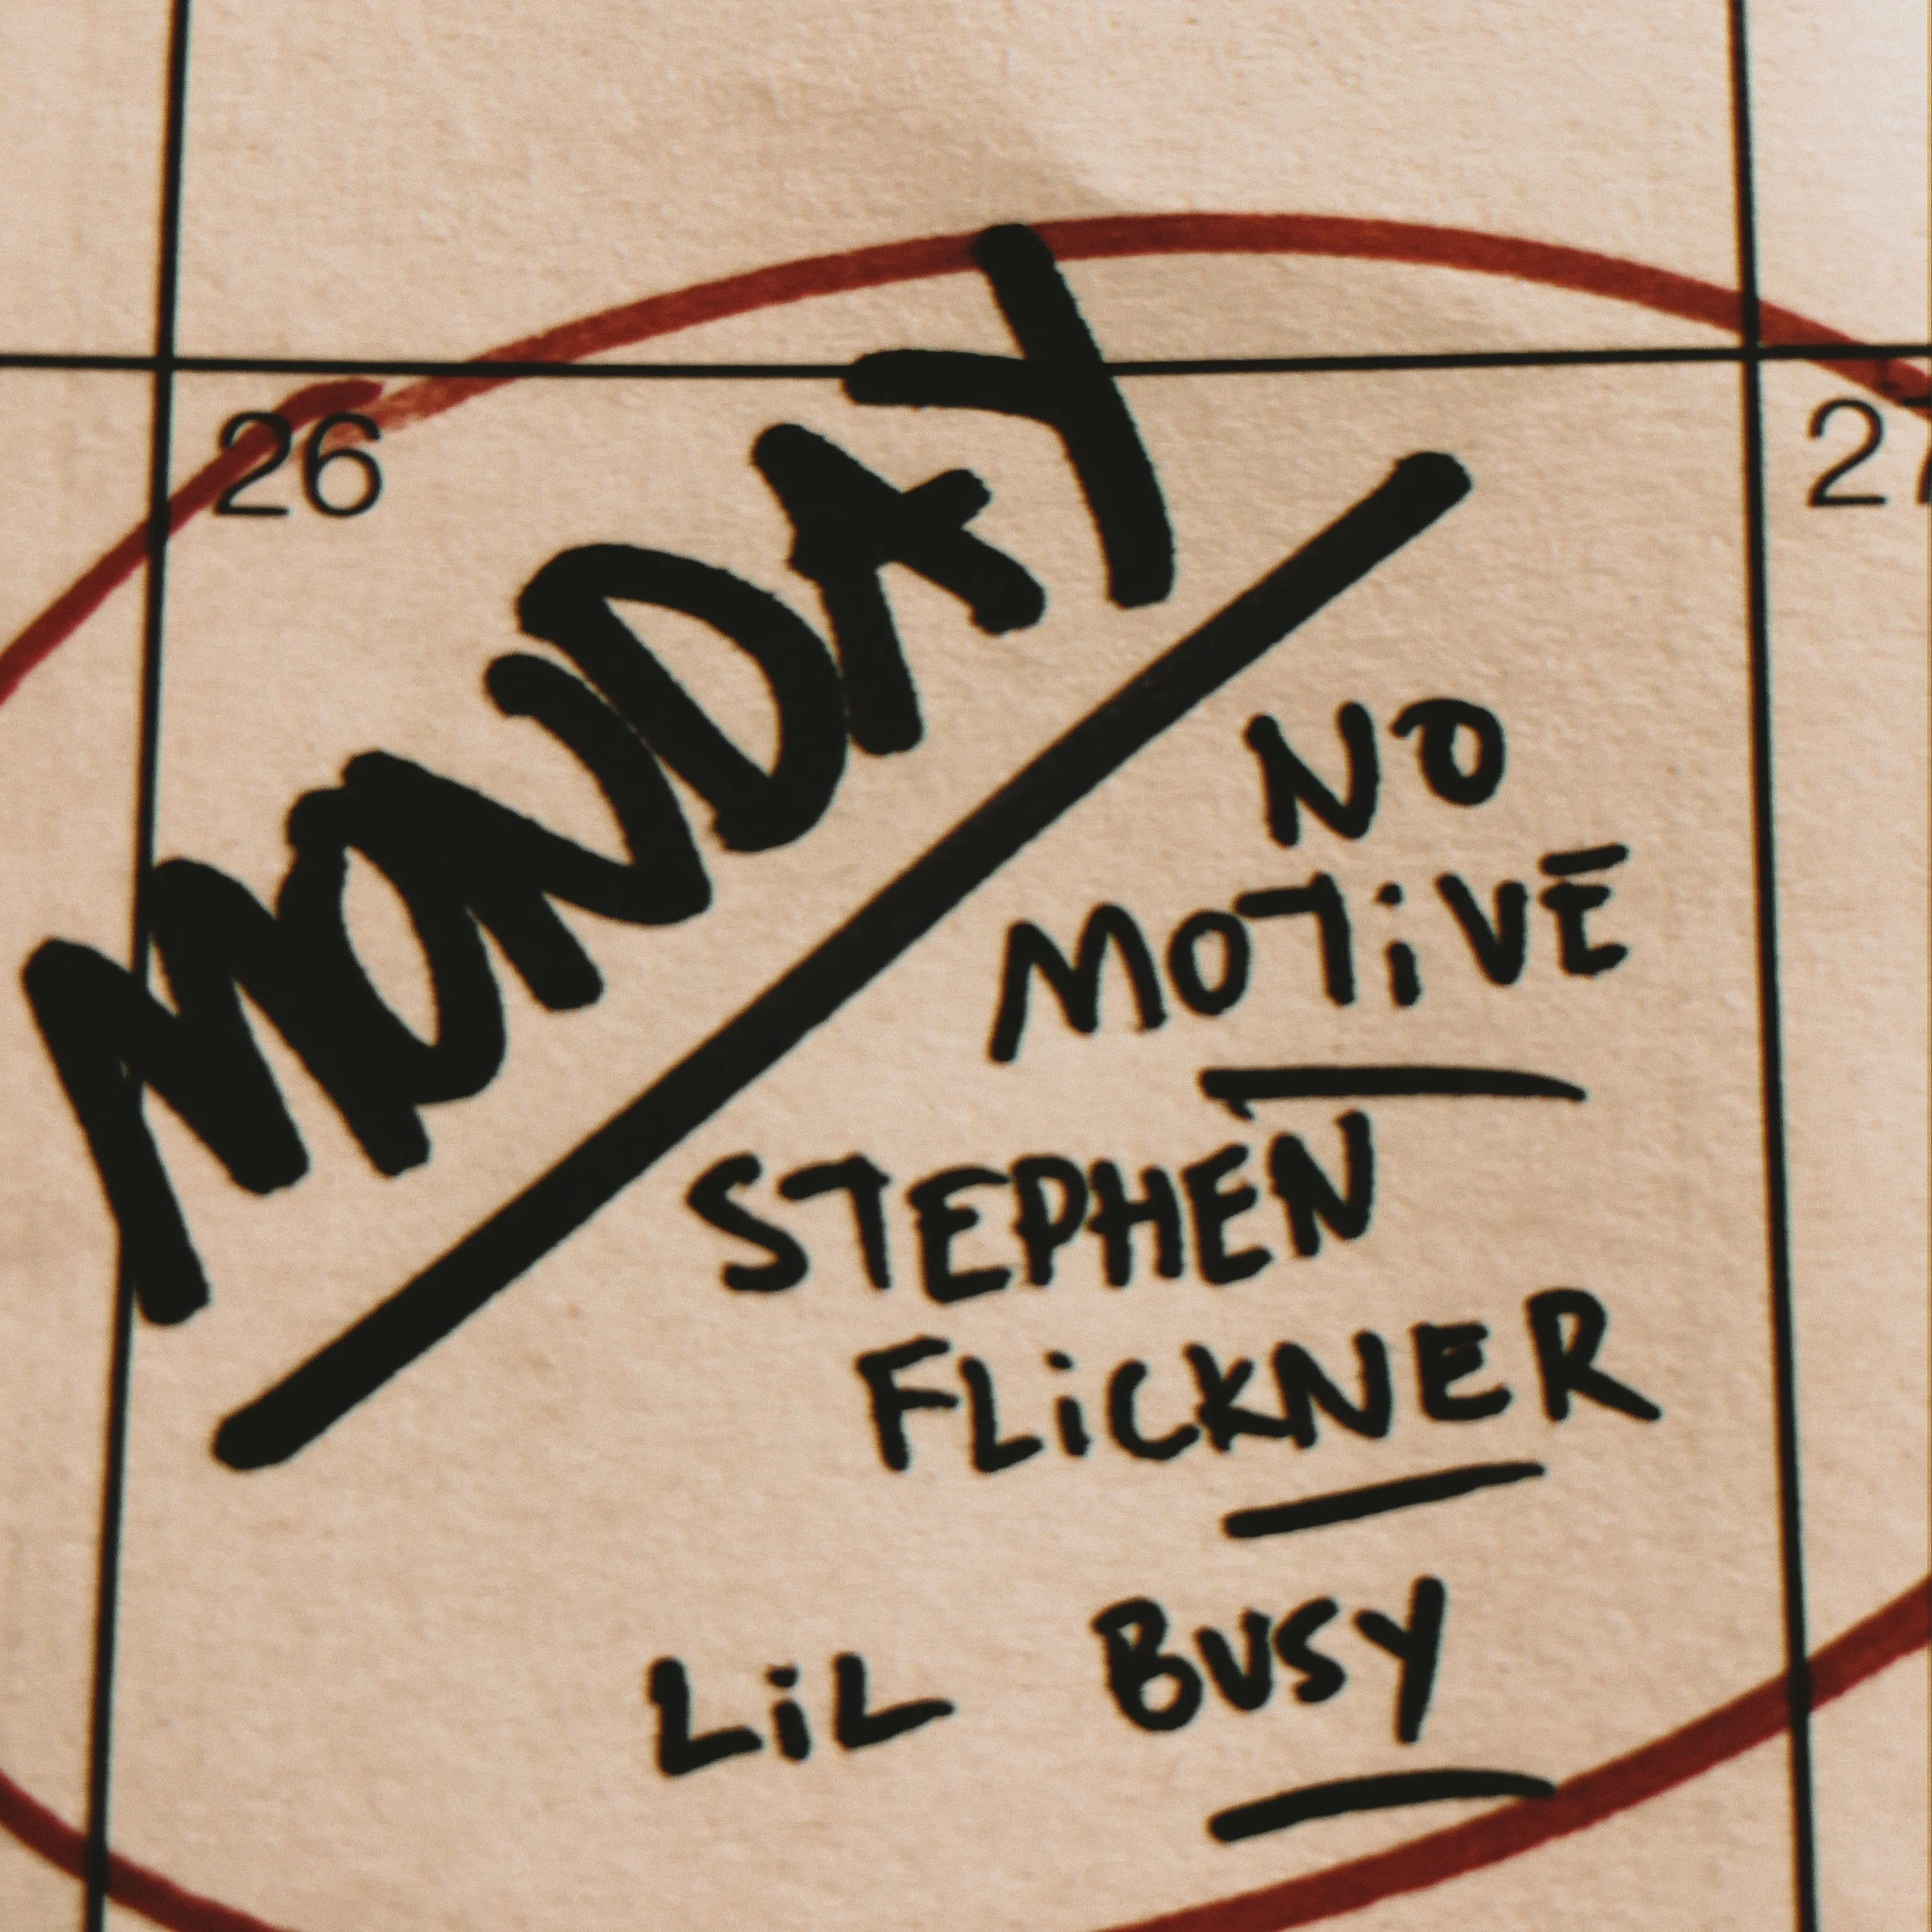 26
27
MONDAY
NO
MOTiVE
STEPHEN
FLiCKNER
LiL BUSY